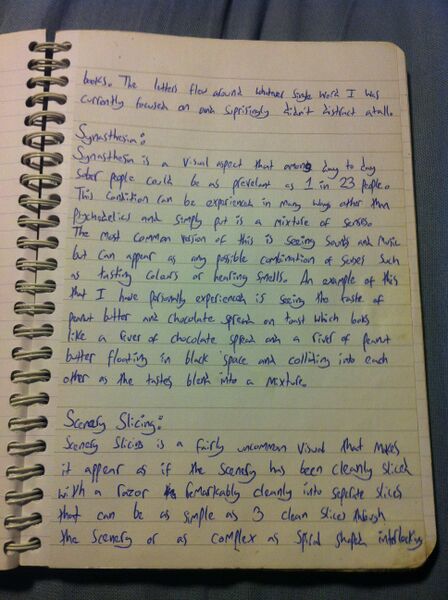 books. The letters flow around whatever single word I was
currently focused on and suprisingly didn't distract atall.
Synasthesia:
Synasthesia is a visual aspect that among day to day
sober people could be as prevelant as 1 in 23 people.
This condition can be experienced in many ways other than
Psychadelics and simply put is a mixture of senses.
The most common version of this is seeing sounds and music
but can appear as any possible combination of senses such
as tasting colours or hearing smells. An example of this
that I have personally experienced is seeing the taste of
peanut butter and chocolate spread on toast which looks
like a river of chocolate spread and a river of peanut
butter floating in black space and colliding into each
other as the tastes blend into a mixture.
Scenery Slicing:
Scenery Slicing is a fairly uncommon visual that makes
it appear as if the scenery has been cleanly sliced
with a razor remarkably cleanly into seperate slices
that can be as simple as 3 clean slices through
the scenery or as complex as spiral shaped interlocking